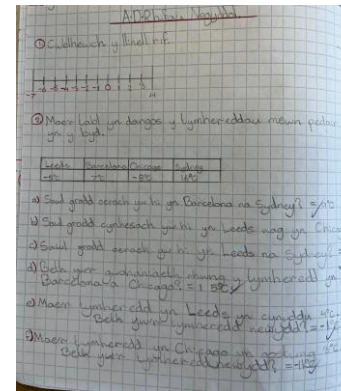 Adolygu
① Cwblhewch y llinell rif.
-7 -6 -5 -4 -3 -2 -1 0 1 2 3 4
② Mae'r tabl yn dangos y tymhereddau mewn pedair
yn y byd.
Leeds Barcelona Chicago Sydney
-5°C 7°C -8°C
a) Sawl gradd oerach yw hi yn Barcelona na Sydney? =
b) Sawl gradd cynhesach yw hi yn Leeds nag yn Chica
c) Sawl gradd oerach yw hi yn Leeds na Sydney? =
d) Beth yw'r gwahaniaeth rhwng y tymheredd yn
Barcelona a Chicago? = 15°C
e) Mae'r tymheredd yn Leeds yn cynyddu 4°C.
Beth yw'r tymheredd newydd? = -1°C
f) Mae'r tymheredd yn Chicago yn gostwng
Beth yw'r tymheredd newydd? =